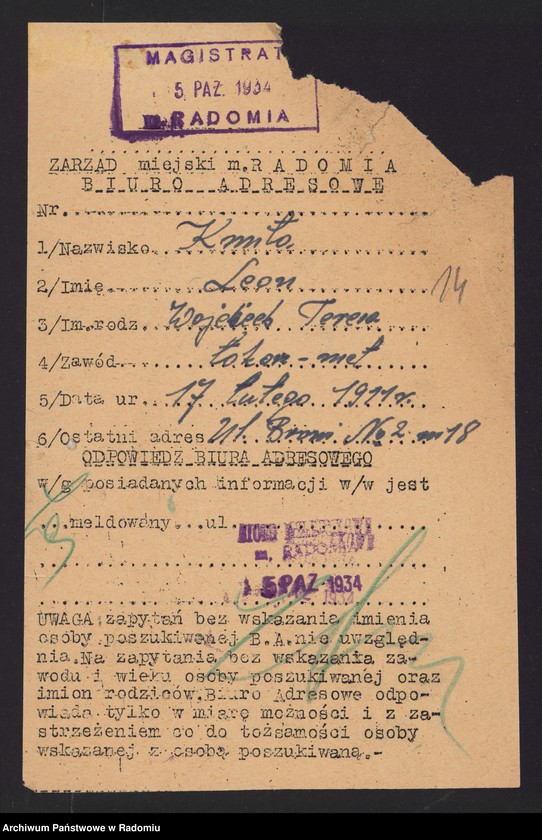 MAGISTRAT
5 PAŹ. 1934
m. RADOMIA
ZARZĄD miejski m. R A D O M I A
B I U R O A D R E S O W E
Nr.
1/Nazwisko Kmito
2/Imię Leon
14
3/Im.rodz. Wojciech Teresa
4/Zawód tokarz-met
5/Data ur. 17 lutego 1911 r.
6/Ostatni adres Ul. № 2 m 18
ODPOWIEDZ BIURA ADRESOWEGO
w/g posiadanych informacji w/w jest
meldowany ul.
m. RADOMIU
15 PAŹ 1934
UWAGA zapytań bez wskazania imienia
osoby poszukiwanej B.A.nie uwzględ-
nia.Na zapytania bez wskazania za-
wodu i wieku osoby poszukiwanej oraz
imion rodziców.Biuro Adresowe odpo-
wiada tylko w miarę możności i z za-
strzeżeniem co do tożsamości osoby
wskazanej z osobą poszukiwaną.-
Archiwum Państwowe w Radomiu